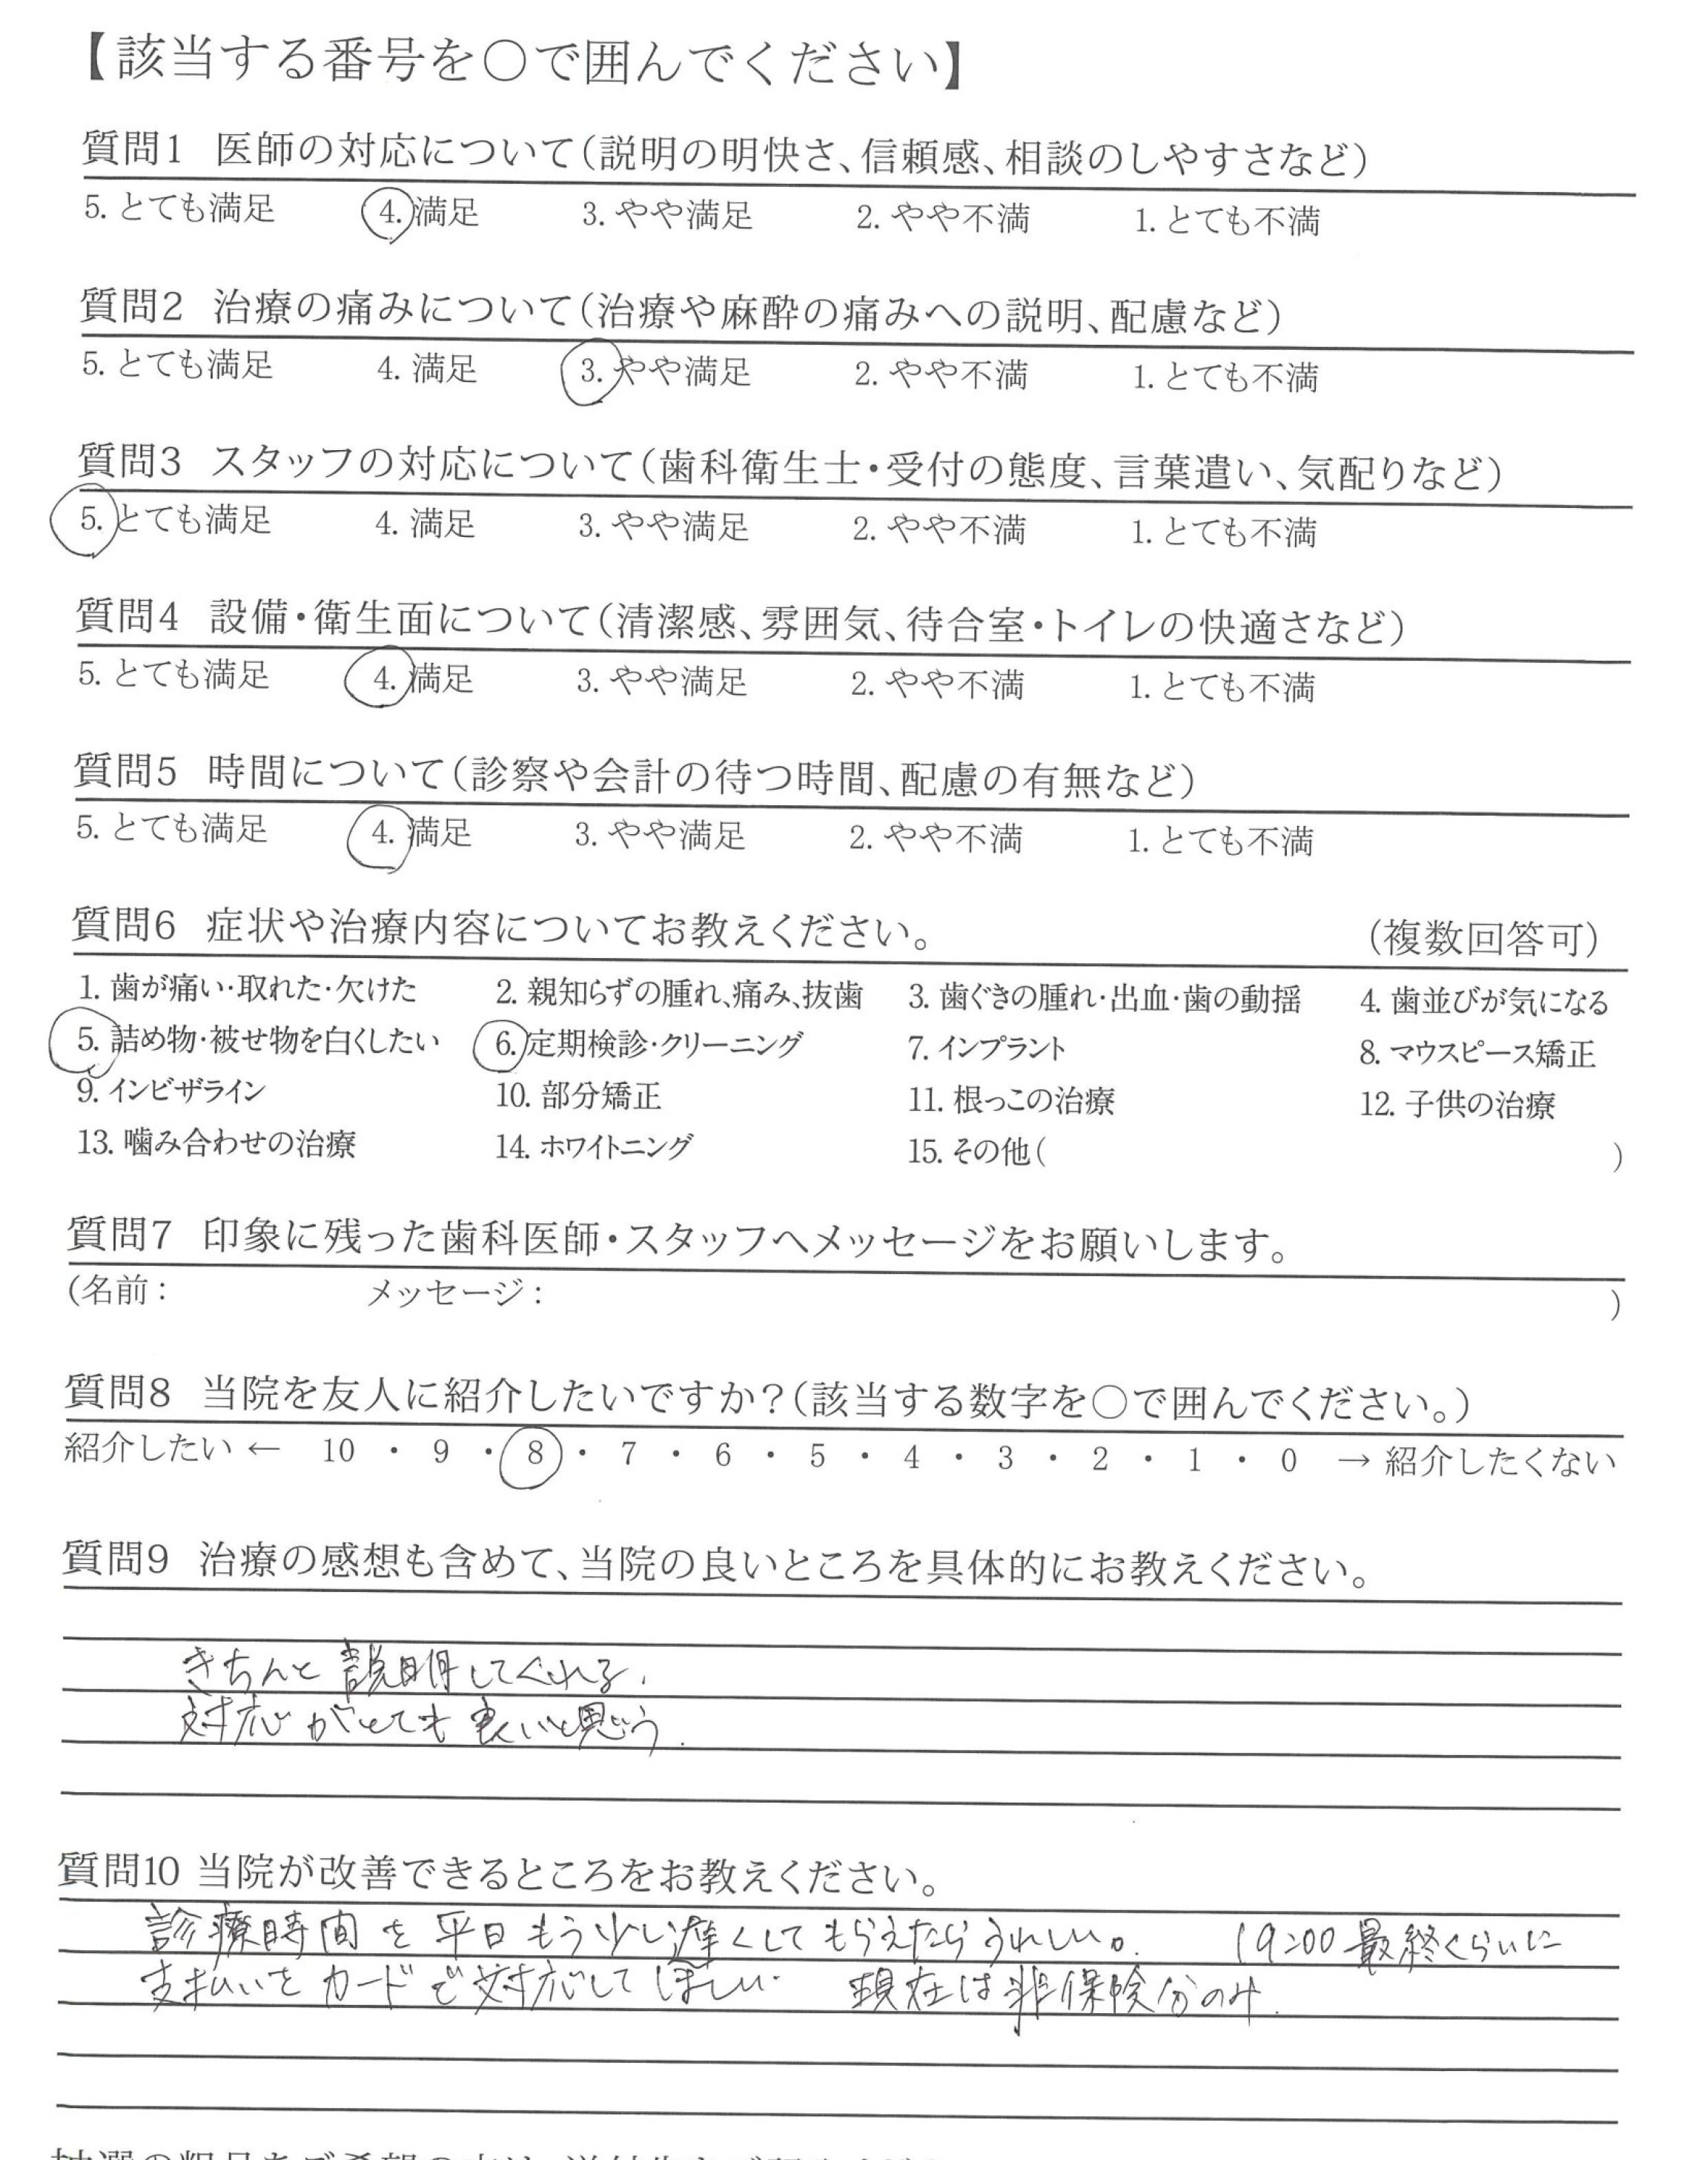 【該当する番号を○で囲んでください】
質問1 医師の対応について(説明の明快さ、信頼感、相談のしやすさなど)
5. とても満足 4. 満足 3. やや満足 2. やや不満 1. とても不満
質問2 治療の痛みについて(治療や麻酔の痛みへの説明、配慮など)
5. とても満足 4. 満足 3. やや満足 2. やや不満 1. とても不満
質問3 スタッフの対応について(歯科衛生士・受付の態度、言葉遣い、気配りなど)
5. とても満足 4. 満足 3. やや満足 2. やや不満 1. とても不満
質問4 設備・衛生面について(清潔感、雰囲気、待合室・トイレの快適さなど)
5. とても満足 4. 満足 3. やや満足 2. やや不満 1. とても不満
質問5 時間について(診察や会計の待つ時間、配慮の有無など)
5. とても満足 4. 満足 3. やや満足 2. やや不満 1. とても不満
質問6 症状や治療内容についてお教えください。 (複数回答可)
1. 歯が痛い・取れた・欠けた 2. 親知らずの腫れ、痛み、抜歯 3. 歯ぐきの腫れ・出血・歯の動揺 4. 歯並びが気になる
5. 詰め物・被せ物を白くしたい 6. 定期検診・クリーニング 7. インプラント 8. マウスピース矯正
9. インビザライン 10. 部分矯正 11. 根っこの治療 12. 子供の治療
13. 噛み合わせの治療 14. ホワイトニング 15. その他( )
質問7 印象に残った歯科医師・スタッフへメッセージをお願いします。
(名前: メッセージ: )
質問8 当院を友人に紹介したいですか?(該当する数字を○で囲んでください。)
紹介したい ← 10 ・ 9 ・ 8 ・ 7 ・ 6 ・ 5 ・ 4 ・ 3 ・ 2 ・ 1 ・ 0 → 紹介したくない
質問9 治療の感想も含めて、当院の良いところを具体的にお教えください。
きちんと説明してくれる.
対応がとても良いと思う.
質問10 当院が改善できるところをお教えください。
診療時間を平日もう少し遅くしてもらえたらうれしい。 19:00最終くらいに
支払いをカードで対応してほしい. 現在は非保険分のみ.